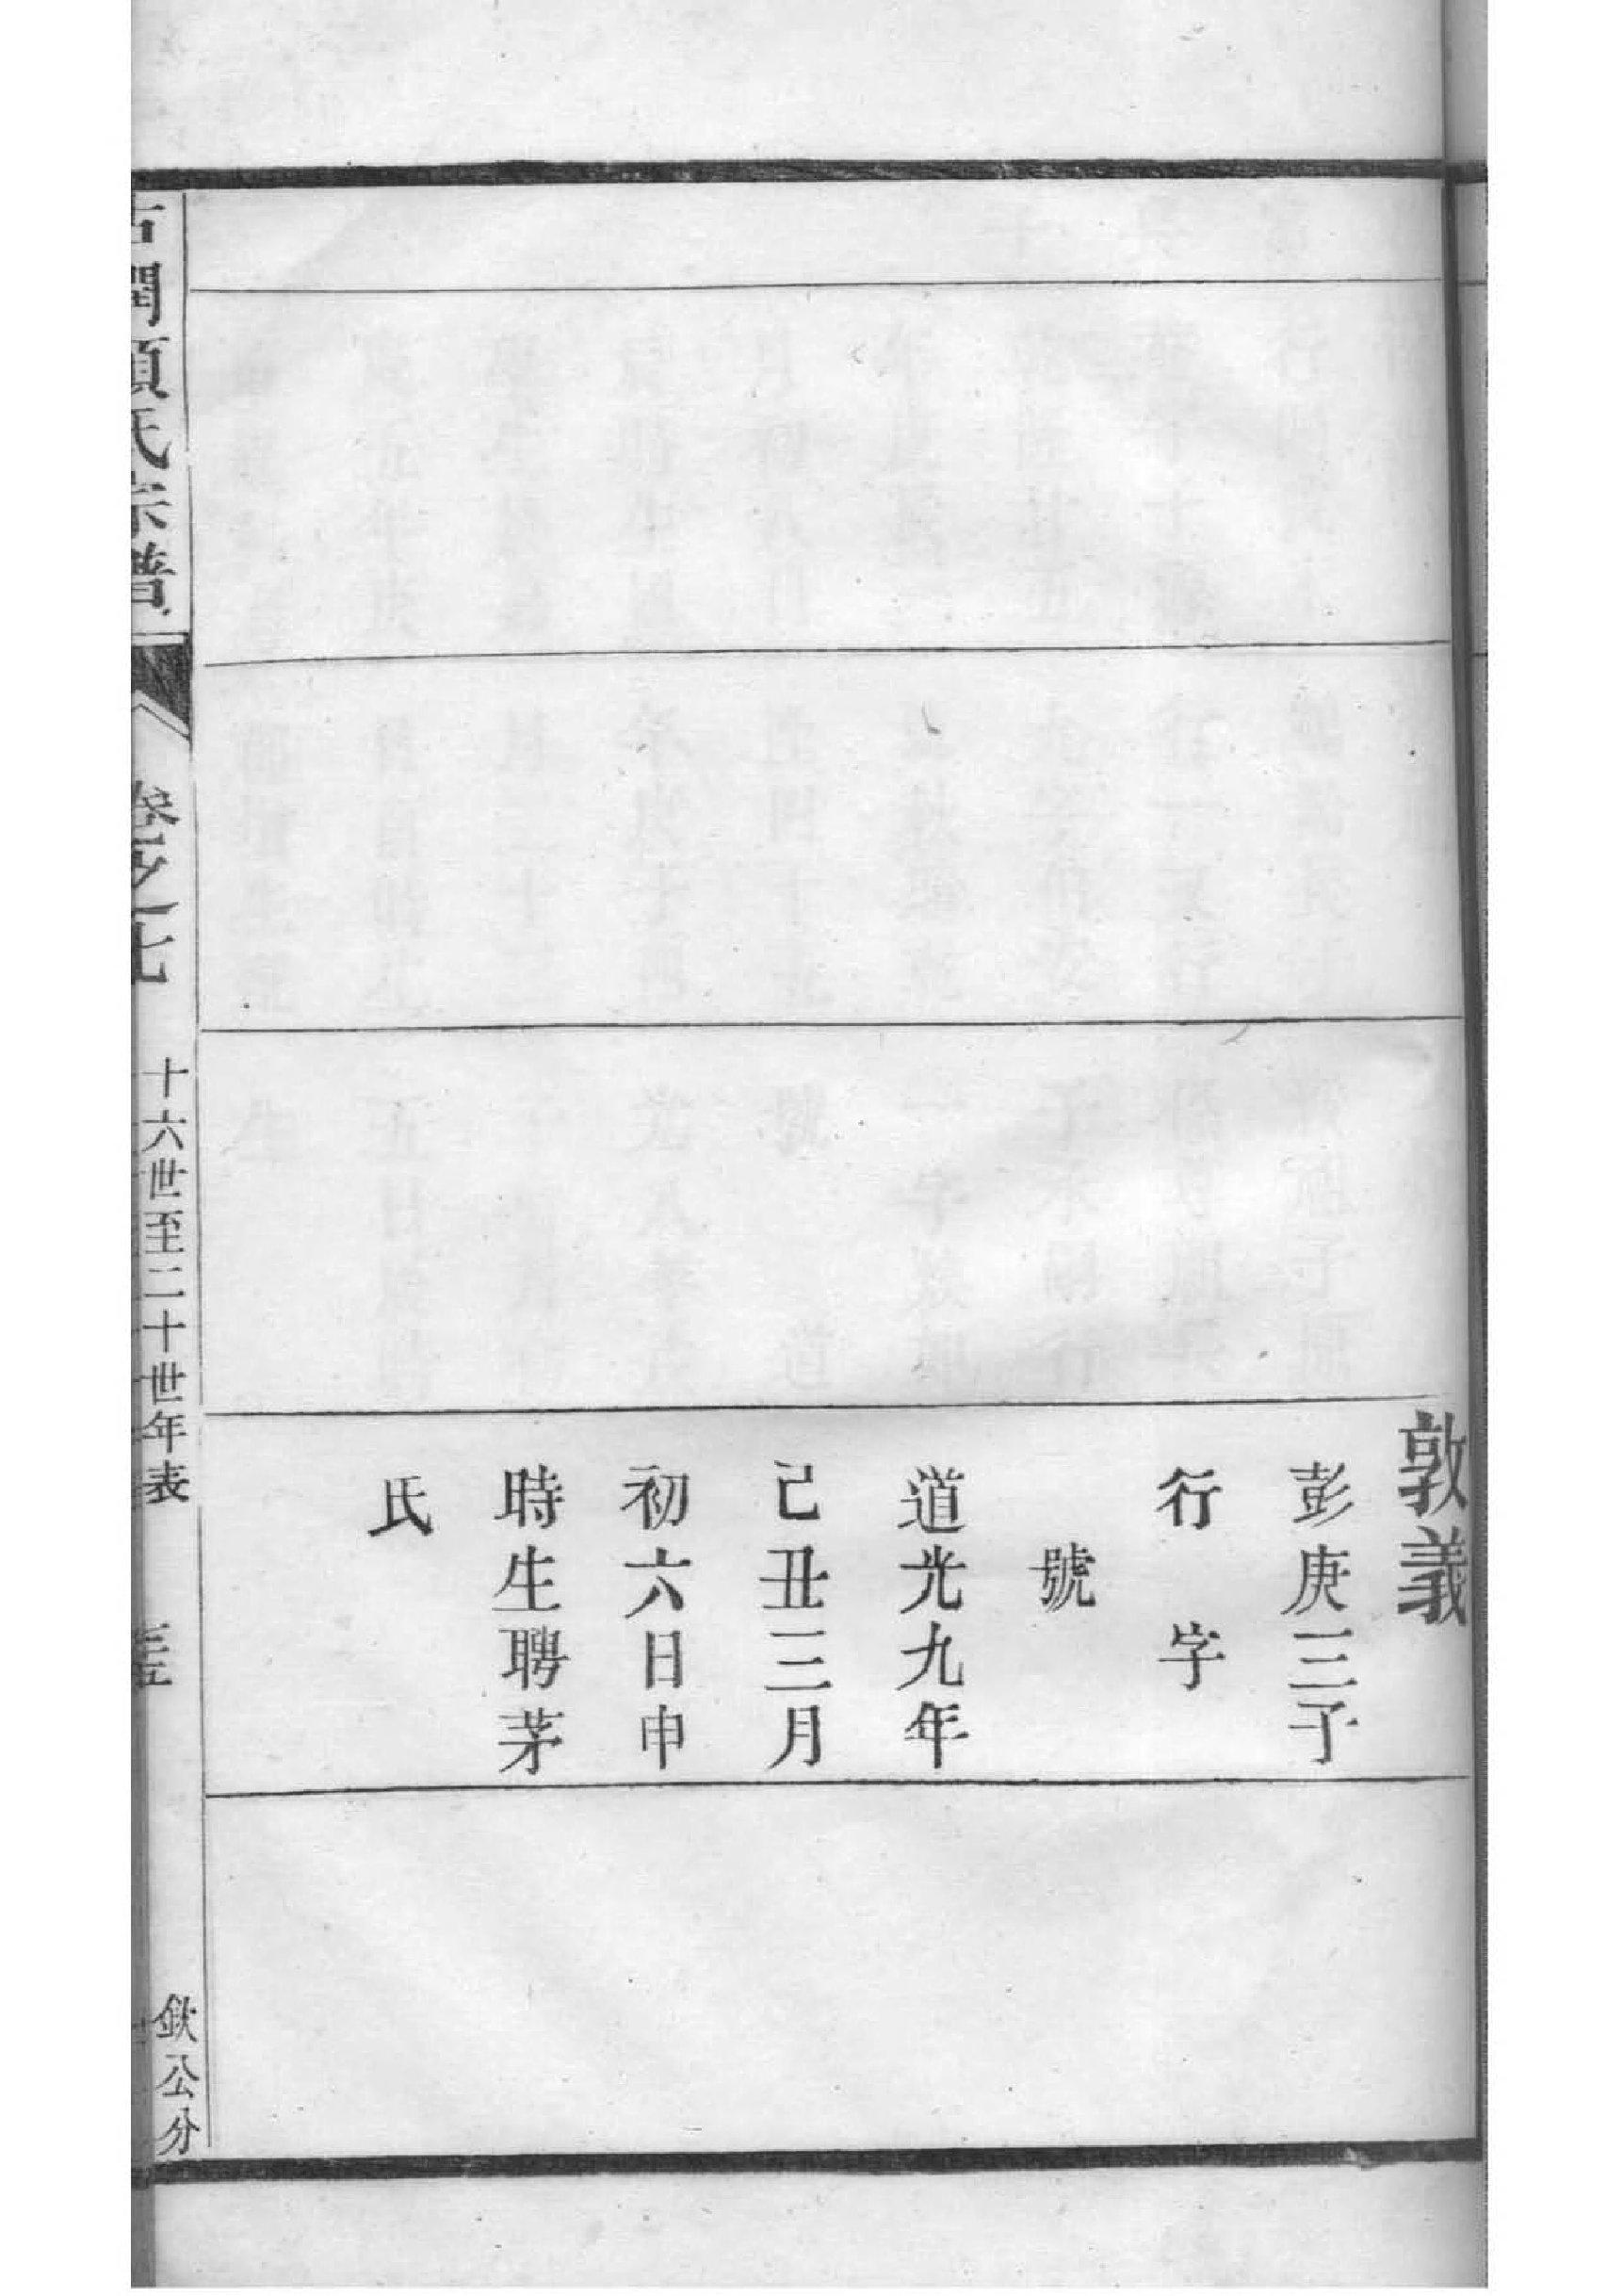 敦義
彭庚三子
行　字
號
道光九年
己丑三月
初六日申
時生聘茅
氏
古閏項氏宗譜
卷之七
十六世至二十世年表
欽公分